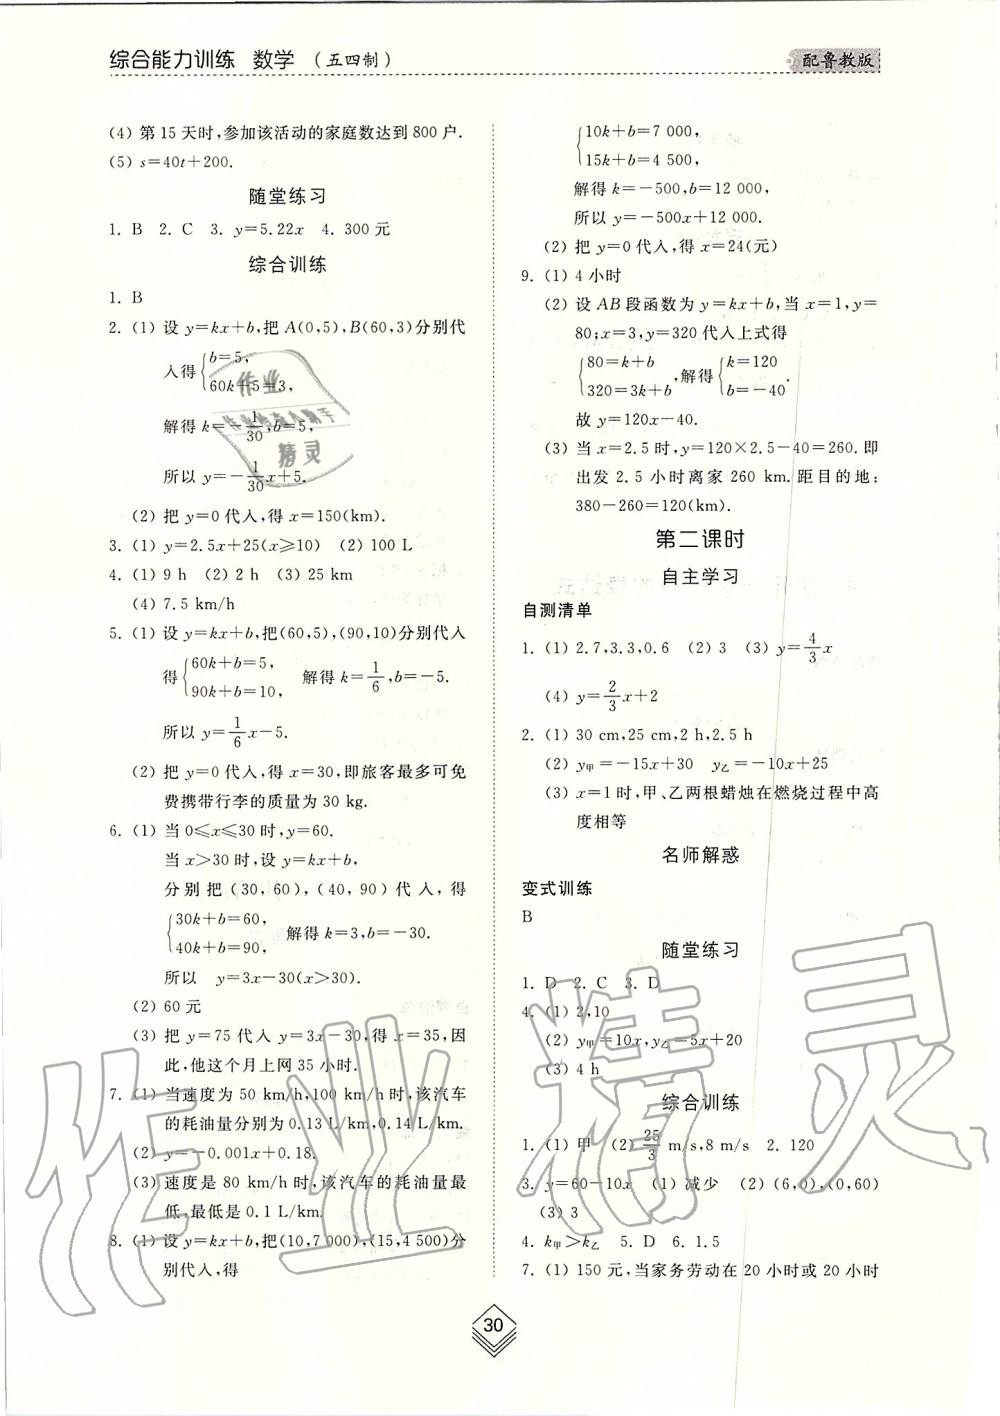 综合能力训练 数学 （五四制）
配鲁教版
(4) 第 15 天时,参加该活动的家庭数达到 800 户.
(5) s=40t+200.
随堂练习
1. B 2. C 3. y=5.22x 4. 300 元
综合训练
1. B
2. (1) 设 y=kx+b,把 A(0,5),B(60,3)分别代
入得{b=5,
60k+5=3,
解得 k=-1/30,b=5,
所以 y=-1/30x+5.
(2) 把 y=0 代入,得 x=150(km).
3. (1) y=2.5x+25(x≥10) (2) 100 L
4. (1) 9 h (2) 2 h (3) 25 km
(4) 7.5 km/h
5. (1) 设 y=kx+b,把(60,5),(90,10)分别代入
得{60k+b=5,
90k+b=10, 解得 k=1/6,b=-5.
所以 y=1/6x-5.
(2) 把 y=0 代入,得 x=30,即旅客最多可免
费携带行李的质量为 30 kg.
6. (1) 当 0≤x≤30 时,y=60.
当 x>30 时,设 y=kx+b,
分别把 (30,60),(40,90) 代入,得
{30k+b=60,
40k+b=90, 解得 k=3,b=-30.
所以 y=3x-30(x>30).
(2) 60 元
(3) 把 y=75 代入 y=3x-30,得 x=35,因
此,他这个月上网 35 小时.
7. (1) 当速度为 50 km/h,100 km/h 时,该汽车
的耗油量分别为 0.13 L/km,0.14 L/km.
(2) y=-0.001x+0.18.
(3) 速度是 80 km/h 时,该汽车的耗油量最
低,最低是 0.1 L/km.
8. (1) 设 y=kx+b,把(10,7 000),(15,4 500)分
别代入,得
{10k+b=7 000,
15k+b=4 500,
解得 k=-500,b=12 000,
所以 y=-500x+12 000.
(2) 把 y=0 代入,得 x=24(元)
9. (1) 4 小时
(2) 设 AB 段函数为 y=kx+b,当 x=1,y=
80;x=3,y=320 代入上式得
{80=k+b
320=3k+b ,解得{k=120
b=-40.
故 y=120x-40.
(3) 当 x=2.5 时,y=120×2.5-40=260.即
出发 2.5 小时离家 260 km.距目的地:
380-260=120(km).
第二课时
自主学习
自测清单
1. (1) 2.7,3.3,0.6 (2) 3 (3) y=4/3x
(4) y=2/3x+2
2. (1) 30 cm,25 cm,2 h,2.5 h
(2) y甲=-15x+30 y乙=-10x+25
(3) x=1 时,甲、乙两根蜡烛在燃烧过程中高
度相等
名师解惑
变式训练
B
随堂练习
1. D 2. C 3. D
4. (1) 2,10
(2) y甲=10x,y乙=5x+20
(3) 4 h
综合训练
1. (1) 甲 (2) 25/3 m/s,8 m/s 2. 120
3. y=60-10x (1) 减少 (2) (6,0),(0,60)
(3) 3
4. k甲>k乙 5. D 6. 1.5
7. (1) 150 元,当家务劳动在 20 小时或 20 小时
30
作业精灵